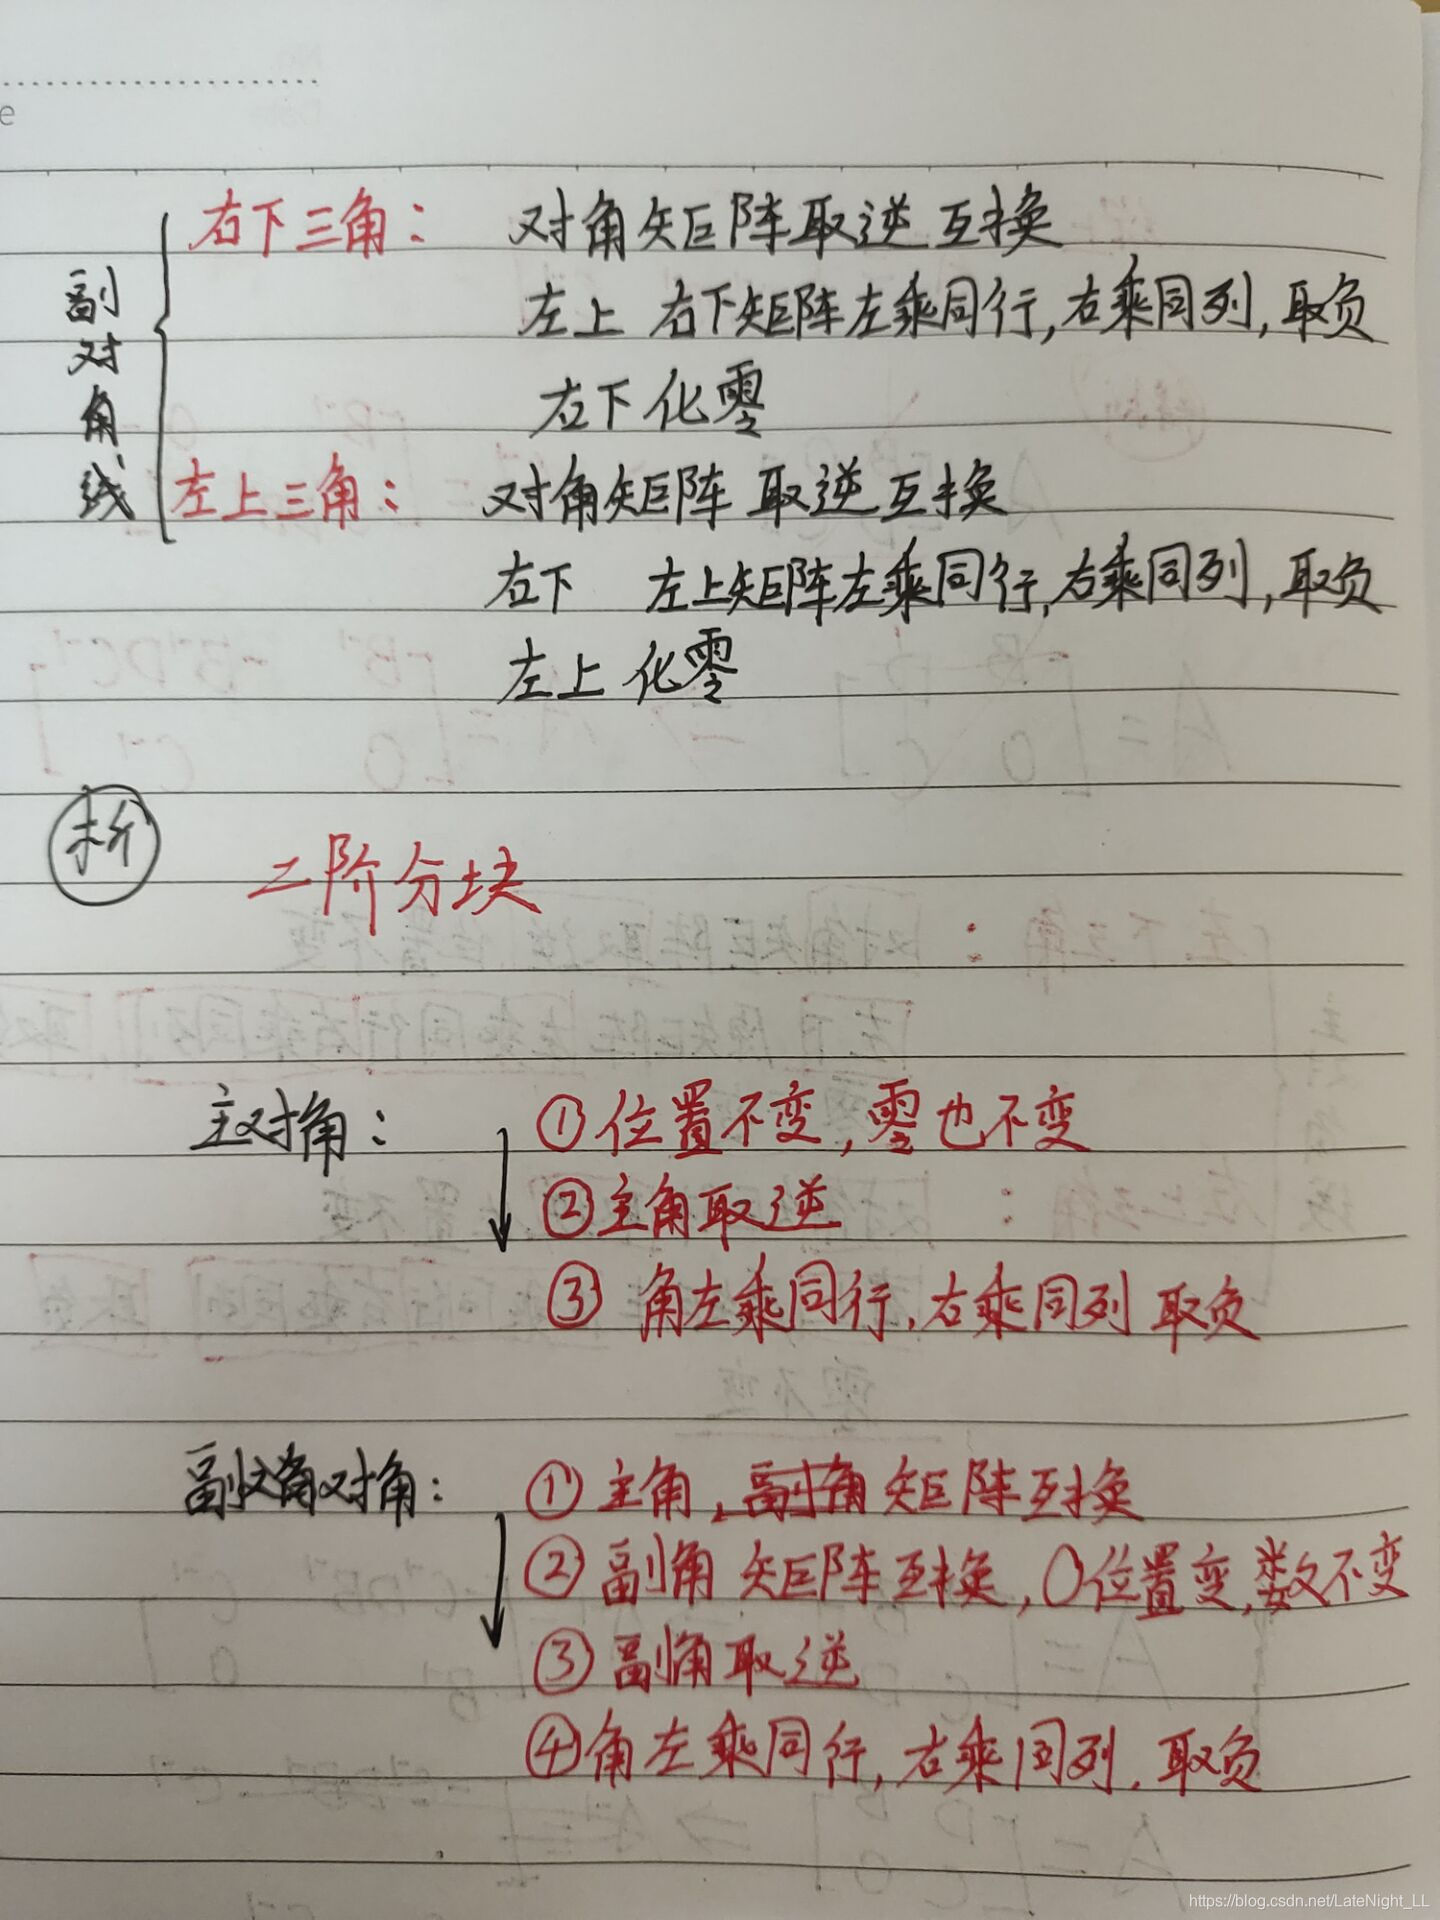 e
副对角线
右下三角： 对角矩阵取逆互换
左上 右下矩阵左乘同行,右乘同列,取负
右下化零
左上三角： 对角矩阵 取逆互换
右下 左上矩阵左乘同行,右乘同列,取负
左上化零
析
二阶分块
主对角： ①位置不变,零也不变
②主角取逆
③ 角左乘同行,右乘同列 取负
对角： ①主角,副角矩阵互换
②副角 矩阵互换,0位置变,数不变
③副角取逆
④角左乘同行,右乘同列,取负
https://blog.csdn.net/LateNight_LL